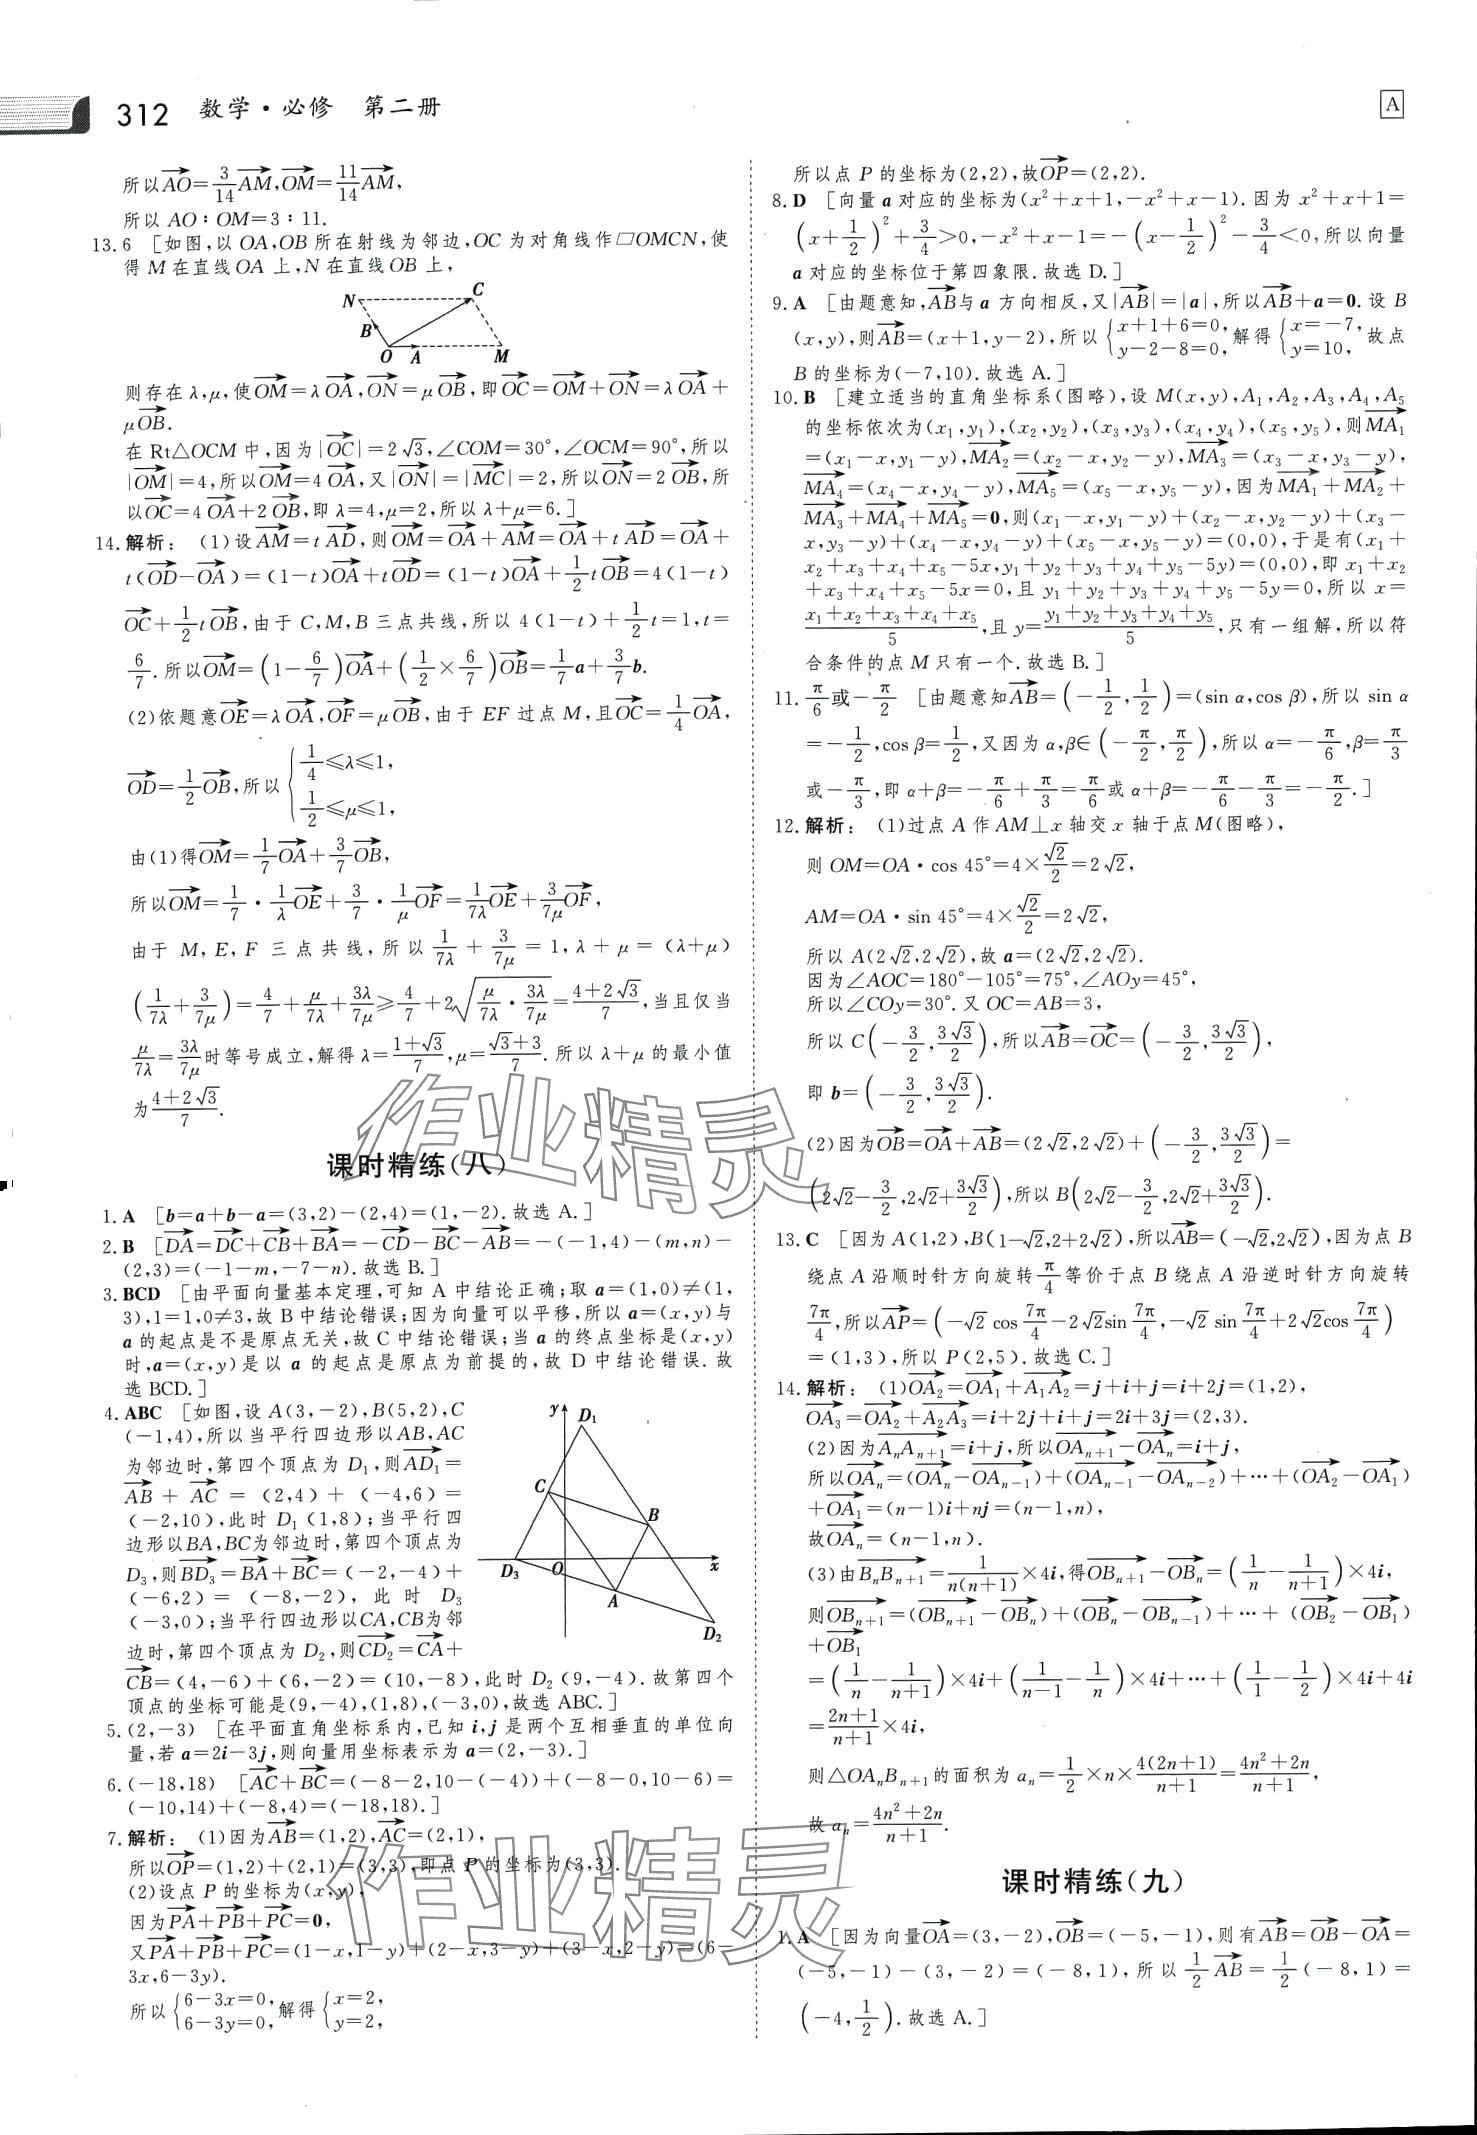 312 数学·必修 第二册
A
所以$\overrightarrow{AO}=\frac{3}{14}\overrightarrow{AM}$,$\overrightarrow{OM}=\frac{11}{14}\overrightarrow{AM}$,
所以 AO∶OM=3∶11.
13.6 [如图,以 OA,OB 所在射线为邻边,OC 为对角线作▱OMCN,使
得 M 在直线 OA 上,N 在直线 OB 上,
N C B O A M
则存在 λ,μ,使$\overrightarrow{OM}=λ\overrightarrow{OA}$,$\overrightarrow{ON}=μ\overrightarrow{OB}$,即$\overrightarrow{OC}=\overrightarrow{OM}+\overrightarrow{ON}=λ\overrightarrow{OA}+$
$μ\overrightarrow{OB}$.
在 Rt△OCM 中,因为$|\overrightarrow{OC}|=2\sqrt{3}$,∠COM=30°,∠OCM=90°,所以
$|\overrightarrow{OM}|=4$,所以$\overrightarrow{OM}=4\overrightarrow{OA}$,又$|\overrightarrow{ON}|=|\overrightarrow{MC}|=2$,所以$\overrightarrow{ON}=2\overrightarrow{OB}$,所
以$\overrightarrow{OC}=4\overrightarrow{OA}+2\overrightarrow{OB}$,即 λ=4,μ=2,所以 λ+μ=6.]
14.解析：(1)设$\overrightarrow{AM}=t\overrightarrow{AD}$,则$\overrightarrow{OM}=\overrightarrow{OA}+\overrightarrow{AM}=\overrightarrow{OA}+t\overrightarrow{AD}=\overrightarrow{OA}+$
$t(\overrightarrow{OD}-\overrightarrow{OA})=(1-t)\overrightarrow{OA}+t\overrightarrow{OD}=(1-t)\overrightarrow{OA}+\frac{1}{2}t\overrightarrow{OB}=4(1-t)$
$\overrightarrow{OC}+\frac{1}{2}t\overrightarrow{OB}$,由于 C,M,B 三点共线,所以 $4(1-t)+\frac{1}{2}t=1$,t=
$\frac{6}{7}$.所以$\overrightarrow{OM}=\left(1-\frac{6}{7}\right)\overrightarrow{OA}+\left(\frac{1}{2}×\frac{6}{7}\right)\overrightarrow{OB}=\frac{1}{7}a+\frac{3}{7}b$.
(2)依题意$\overrightarrow{OE}=λ\overrightarrow{OA}$,$\overrightarrow{OF}=μ\overrightarrow{OB}$,由于 EF 过点 M,且$\overrightarrow{OC}=\frac{1}{4}\overrightarrow{OA}$,
$\overrightarrow{OD}=\frac{1}{2}\overrightarrow{OB}$,所以$\begin{cases}\frac{1}{4}≤λ≤1,\\\frac{1}{2}≤μ≤1,\end{cases}$
由(1)得$\overrightarrow{OM}=\frac{1}{7}\overrightarrow{OA}+\frac{3}{7}\overrightarrow{OB}$,
所以$\overrightarrow{OM}=\frac{1}{7}·\frac{1}{λ}\overrightarrow{OE}+\frac{3}{7}·\frac{1}{μ}\overrightarrow{OF}=\frac{1}{7λ}\overrightarrow{OE}+\frac{3}{7μ}\overrightarrow{OF}$,
由于 M,E,F 三点共线,所以 $\frac{1}{7λ}+\frac{3}{7μ}=1$,λ+μ=(λ+μ)
$\left(\frac{1}{7λ}+\frac{3}{7μ}\right)=\frac{4}{7}+\frac{μ}{7λ}+\frac{3λ}{7μ}≥\frac{4}{7}+2\sqrt{\frac{μ}{7λ}·\frac{3λ}{7μ}}=\frac{4+2\sqrt{3}}{7}$,当且仅当
$\frac{μ}{7λ}=\frac{3λ}{7μ}$时等号成立,解得 $λ=\frac{1+\sqrt{3}}{7}$,$μ=\frac{\sqrt{3}+3}{7}$.所以 λ+μ 的最小值
为$\frac{4+2\sqrt{3}}{7}$.
课时精练(八)
1.A [b=a+b-a=(3,2)-(2,4)=(1,-2).故选 A.]
2.B [$\overrightarrow{DA}=\overrightarrow{DC}+\overrightarrow{CB}+\overrightarrow{BA}=-\overrightarrow{CD}-\overrightarrow{BC}-\overrightarrow{AB}$=-(-1,4)-(m,n)-
(2,3)=(-1-m,-7-n).故选 B.]
3.BCD [由平面向量基本定理,可知 A 中结论正确;取 a=(1,0)≠(1,
3),1=1,0≠3,故 B 中结论错误;因为向量可以平移,所以 a=(x,y)与
a 的起点是不是原点无关,故 C 中结论错误;当 a 的终点坐标是(x,y)
时,a=(x,y)是以 a 的起点是原点为前提的,故 D 中结论错误.故
选 BCD.]
4.ABC [如图,设 A(3,-2),B(5,2),C
(-1,4),所以当平行四边形以 AB,AC
为邻边时,第四个顶点为 $D_1$,则$\overrightarrow{AD_1}=$
$\overrightarrow{AB}+\overrightarrow{AC}$=(2,4)+(-4,6)=
(-2,10),此时 $D_1$(1,8);当平行四
边形以BA,BC为邻边时,第四个顶点为
$D_3$,则$\overrightarrow{BD_3}=\overrightarrow{BA}+\overrightarrow{BC}$=(-2,-4)+
(-6,2)=(-8,-2),此时 $D_3$
(-3,0);当平行四边形以CA,CB为邻
边时,第四个顶点为 $D_2$,则$\overrightarrow{CD_2}=\overrightarrow{CA}+$
$\overrightarrow{CB}$=(4,-6)+(6,-2)=(10,-8),此时 $D_2$(9,-4).故第四个
顶点的坐标可能是(9,-4),(1,8),(-3,0),故选 ABC.]
y $D_1$ C B $D_3$ O x A $D_2$
5.(2,-3) [在平面直角坐标系内,已知 i,j 是两个互相垂直的单位向
量,若 a=2i-3j,则向量用坐标表示为 a=(2,-3).]
6.(-18,18) [$\overrightarrow{AC}+\overrightarrow{BC}$=(-8-2,10-(-4))+(-8-0,10-6)=
(-10,14)+(-8,4)=(-18,18).]
7.解析：(1)因为$\overrightarrow{AB}$=(1,2),$\overrightarrow{AC}$=(2,1),
所以$\overrightarrow{OP}$=(1,2)+(2,1)=(3,3),即点 P 的坐标为(3,3).
(2)设点 P 的坐标为(x,y),
因为$\overrightarrow{PA}+\overrightarrow{PB}+\overrightarrow{PC}=0$,
又$\overrightarrow{PA}+\overrightarrow{PB}+\overrightarrow{PC}$=(1-x,1-y)+(2-x,3-y)+(3-x,2-y)=(6-
3x,6-3y).
所以$\begin{cases}6-3x=0,\\6-3y=0,\end{cases}$解得$\begin{cases}x=2,\\y=2,\end{cases}$
所以点 P 的坐标为(2,2),故$\overrightarrow{OP}$=(2,2).
8.D [向量 a 对应的坐标为($x^2+x+1,-x^2+x-1$).因为 $x^2+x+1=$
$\left(x+\frac{1}{2}\right)^2+\frac{3}{4}>0$,$-x^2+x-1=-\left(x-\frac{1}{2}\right)^2-\frac{3}{4}<0$,所以向量
a 对应的坐标位于第四象限.故选 D.]
9.A [由题意知,$\overrightarrow{AB}$与 a 方向相反,又$|\overrightarrow{AB}|=|a|$,所以$\overrightarrow{AB}+a=0$.设 B
(x,y),则$\overrightarrow{AB}$=(x+1,y-2),所以$\begin{cases}x+1+6=0,\\y-2-8=0,\end{cases}$解得$\begin{cases}x=-7,\\y=10,\end{cases}$故点
B 的坐标为(-7,10).故选 A.]
10.B [建立适当的直角坐标系(图略),设 M(x,y),$A_1,A_2,A_3,A_4,A_5$
的坐标依次为$(x_1,y_1),(x_2,y_2),(x_3,y_3),(x_4,y_4),(x_5,y_5)$,则$\overrightarrow{MA_1}$
$=(x_1-x,y_1-y)$,$\overrightarrow{MA_2}=(x_2-x,y_2-y)$,$\overrightarrow{MA_3}=(x_3-x,y_3-y)$,
$\overrightarrow{MA_4}=(x_4-x,y_4-y)$,$\overrightarrow{MA_5}=(x_5-x,y_5-y)$,因为$\overrightarrow{MA_1}+\overrightarrow{MA_2}+$
$\overrightarrow{MA_3}+\overrightarrow{MA_4}+\overrightarrow{MA_5}=0$,则$(x_1-x,y_1-y)+(x_2-x,y_2-y)+(x_3-$
$x,y_3-y)+(x_4-x,y_4-y)+(x_5-x,y_5-y)=(0,0)$,于是有$(x_1+$
$x_2+x_3+x_4+x_5-5x,y_1+y_2+y_3+y_4+y_5-5y)=(0,0)$,即 $x_1+x_2$
$+x_3+x_4+x_5-5x=0$,且 $y_1+y_2+y_3+y_4+y_5-5y=0$,所以 x=
$\frac{x_1+x_2+x_3+x_4+x_5}{5}$,且 $y=\frac{y_1+y_2+y_3+y_4+y_5}{5}$,只有一组解,所以符
合条件的点 M 只有一个.故选 B.]
11.$\frac{π}{6}$或$-\frac{π}{2}$ [由题意知$\overrightarrow{AB}=\left(-\frac{1}{2},\frac{1}{2}\right)$=(sin α,cos β),所以 sin α
$=-\frac{1}{2}$,cos β=$\frac{1}{2}$,又因为 α,β∈$\left(-\frac{π}{2},\frac{π}{2}\right)$,所以 α=$-\frac{π}{6}$,β=$\frac{π}{3}$
或$-\frac{π}{3}$,即 α+β=$-\frac{π}{6}+\frac{π}{3}=\frac{π}{6}$或 α+β=$-\frac{π}{6}-\frac{π}{3}=-\frac{π}{2}$.]
12.解析：(1)过点 A 作 AM⊥x 轴交 x 轴于点 M(图略),
则 OM=OA·cos 45°=4×$\frac{\sqrt{2}}{2}$=2$\sqrt{2}$,
AM=OA·sin 45°=4×$\frac{\sqrt{2}}{2}$=2$\sqrt{2}$,
所以 A(2$\sqrt{2}$,2$\sqrt{2}$),故 a=(2$\sqrt{2}$,2$\sqrt{2}$).
因为∠AOC=180°-105°=75°,∠AOy=45°,
所以∠COy=30°.又 OC=AB=3,
所以 C$\left(-\frac{3}{2},\frac{3\sqrt{3}}{2}\right)$,所以$\overrightarrow{AB}=\overrightarrow{OC}=\left(-\frac{3}{2},\frac{3\sqrt{3}}{2}\right)$,
即 b=$\left(-\frac{3}{2},\frac{3\sqrt{3}}{2}\right)$.
(2)因为$\overrightarrow{OB}=\overrightarrow{OA}+\overrightarrow{AB}=(2\sqrt{2},2\sqrt{2})+\left(-\frac{3}{2},\frac{3\sqrt{3}}{2}\right)=$
$\left(2\sqrt{2}-\frac{3}{2},2\sqrt{2}+\frac{3\sqrt{3}}{2}\right)$,所以 B$\left(2\sqrt{2}-\frac{3}{2},2\sqrt{2}+\frac{3\sqrt{3}}{2}\right)$.
13.C [因为 A(1,2),B(1-$\sqrt{2}$,2+2$\sqrt{2}$),所以$\overrightarrow{AB}=(-\sqrt{2},2\sqrt{2})$,因为点 B
绕点 A 沿顺时针方向旋转$\frac{π}{4}$等价于点 B 绕点 A 沿逆时针方向旋转
$\frac{7π}{4}$,所以$\overrightarrow{AP}=\left(-\sqrt{2}\cos\frac{7π}{4}-2\sqrt{2}\sin\frac{7π}{4},-\sqrt{2}\sin\frac{7π}{4}+2\sqrt{2}\cos\frac{7π}{4}\right)$
=(1,3),所以 P(2,5).故选 C.]
14.解析：(1)$\overrightarrow{OA_2}=\overrightarrow{OA_1}+\overrightarrow{A_1A_2}$=j+i+j=i+2j=(1,2),
$\overrightarrow{OA_3}=\overrightarrow{OA_2}+\overrightarrow{A_2A_3}$=i+2j+i+j=2i+3j=(2,3).
(2)因为$\overrightarrow{A_nA_{n+1}}$=i+j,所以$\overrightarrow{OA_{n+1}}-\overrightarrow{OA_n}$=i+j,
所以$\overrightarrow{OA_n}=(\overrightarrow{OA_n}-\overrightarrow{OA_{n-1}})+(\overrightarrow{OA_{n-1}}-\overrightarrow{OA_{n-2}})+…+(\overrightarrow{OA_2}-\overrightarrow{OA_1})$
$+\overrightarrow{OA_1}$=(n-1)i+nj=(n-1,n),
故$\overrightarrow{OA_n}$=(n-1,n).
(3)由$\overrightarrow{B_nB_{n+1}}=\frac{1}{n(n+1)}×4i$,得$\overrightarrow{OB_{n+1}}-\overrightarrow{OB_n}=\left(\frac{1}{n}-\frac{1}{n+1}\right)×4i$,
则$\overrightarrow{OB_{n+1}}=(\overrightarrow{OB_{n+1}}-\overrightarrow{OB_n})+(\overrightarrow{OB_n}-\overrightarrow{OB_{n-1}})+…+(\overrightarrow{OB_2}-\overrightarrow{OB_1})$
$+\overrightarrow{OB_1}$
$=\left(\frac{1}{n}-\frac{1}{n+1}\right)×4i+\left(\frac{1}{n-1}-\frac{1}{n}\right)×4i+…+\left(\frac{1}{1}-\frac{1}{2}\right)×4i+4i$
$=\frac{2n+1}{n+1}×4i$,
则△$OA_nB_{n+1}$的面积为 $a_n=\frac{1}{2}×n×\frac{4(2n+1)}{n+1}=\frac{4n^2+2n}{n+1}$,
故 $a_n=\frac{4n^2+2n}{n+1}$.
课时精练(九)
1.A [因为向量$\overrightarrow{OA}$=(3,-2),$\overrightarrow{OB}$=(-5,-1),则有$\overrightarrow{AB}=\overrightarrow{OB}-\overrightarrow{OA}=$
(-5,-1)-(3,-2)=(-8,1),所以 $\frac{1}{2}\overrightarrow{AB}=\frac{1}{2}$(-8,1)=
$\left(-4,\frac{1}{2}\right)$.故选 A.]
作业精灵
作业精灵